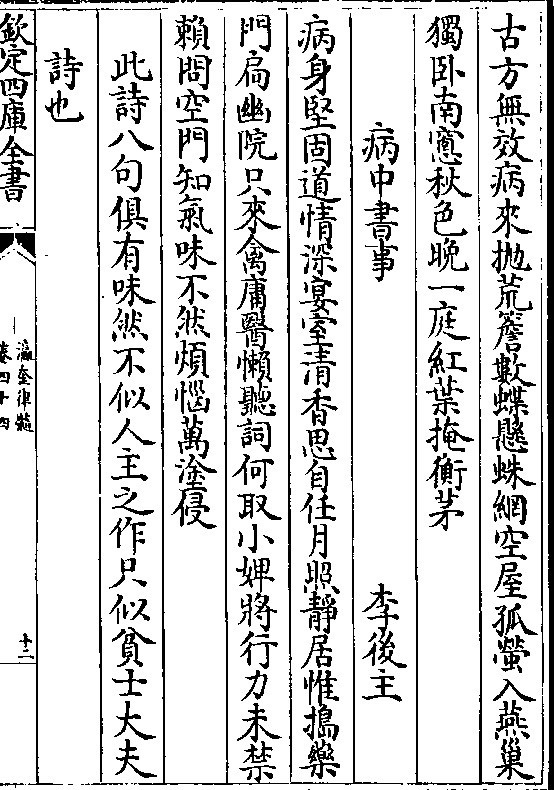 古方無效病來拋荒簷數蝶懸蛛網空屋孤螢入燕巢
獨卧南窻秋色晚一庭紅葉掩衡茅
病中書事　李後主
病身堅固道情深宴室清香思自任月照靜居惟搗藥
門扃幽院只來禽庸醫懶聽詞何取小婢將行力未禁
賴問空門知氣味不然煩惱萬塗侵
此詩八句俱有味然不似人主之作只似貧士大夫
詩也
欽定四庫全書
瀛奎律髓
卷四十四
十二